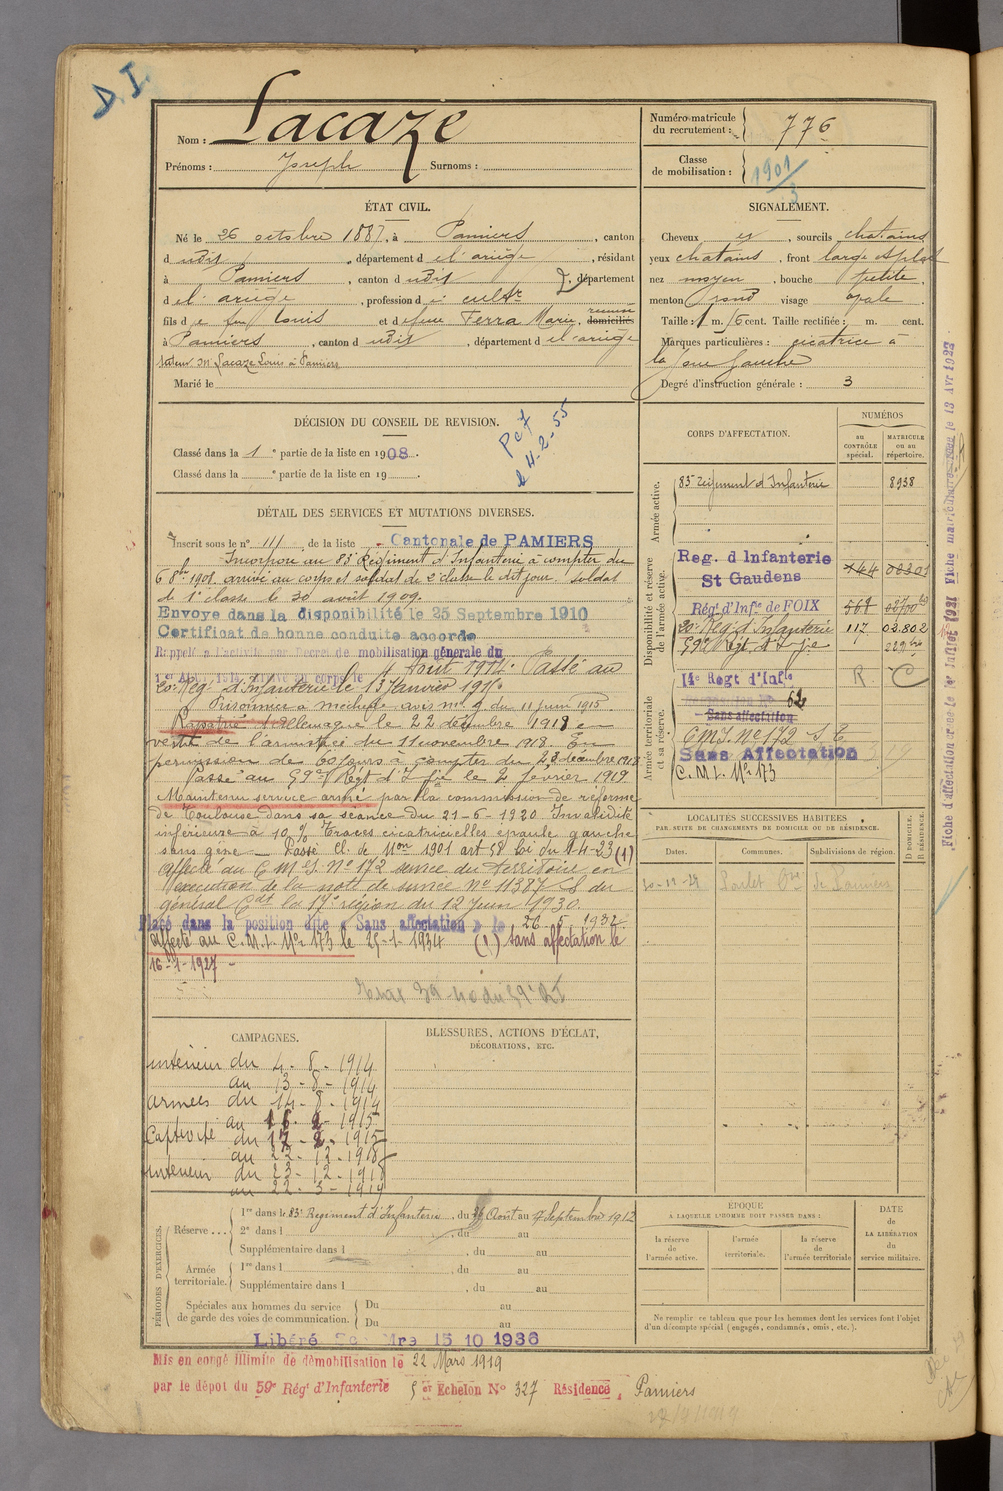 D. I.
Nom : Lacaze
Prénoms : Joseph Surnoms :
Numéro matricule du recrutement : 776
Classe de mobilisation : 1901/3
ÉTAT CIVIL.
Né le 26 octobre 1887, à Pamiers, canton
dudit, département de l'ariège, résidant
à Pamiers, canton dudit, département
de l'ariège, profession de cultr
fils de feu Louis et de feue Ferra Marie, domiciliés
à Pamiers, canton dudit, département de l'ariège
tuteur Mr Lacaze Louis à Pamiers
Marié le
SIGNALEMENT.
Cheveux et, sourcils chatains
yeux chatains, front large et plat
nez moyen, bouche petite
menton rond visage ovale
Taille : 1 m. 76 cent. Taille rectifiée : m. cent.
Marques particulières : cicatrice à
la joue gauche
Degré d'instruction générale : 3
DÉCISION DU CONSEIL DE REVISION.
Classé dans la 1e partie de la liste en 1908.
Classé dans la e partie de la liste en 19 .
le 4-2-55
DÉTAIL DES SERVICES ET MUTATIONS DIVERSES.
Inscrit sous le n° 111 de la liste Cantonale de PAMIERS
Incorporé au 83e Régiment d'Infanterie à compter du
6 8bre 1908. arrivé au corps et soldat de 2e classe le dit jour. Soldat
de 1e classe le 30 août 1909.
Envoyé dans la disponibilité le 25 Septembre 1910
Certificat de bonne conduite accordé
Rappelé à l'activité par Décret de mobilisation générale du
1er Août 1914. Arrivé au corps le 4 Août 1914. Passé au
20e Rég. d'Infanterie le 13 Janvier 1915
Prisonnier à Meschede avis du 11 juin 1915
Rapatrié d'Allemagne le 22 décembre 1918 en
vertu de l'armistice du 11 novembre 1918. En
permission de 60 jours à compter du 23 décembre 1918
Passé au 59e Régt d'Ifie le 2 février 1919
Maintenu service armé par la commission de réforme
de Toulouse dans sa séance du 21-6-1920 Invalidité
inférieure à 10 % Traces cicatricielles épaule gauche
sans gêne – Passé cl. de Mon 1901 art 58 Loi du 1-4-23 (1)
affecté au C.M. I. No 172 service du territoire en
exécution de la note de service no 11387 S du
général Cdt la 17e région du 12 Juin 1930
Placé dans la position dite « Sans affectation » le 26-5-1932
affecté au C.M.I. No 173 le 25-1-1934 (1) sans affectation le
16-1-1927 –
CORPS D'AFFECTATION.
NUMÉROS
au CONTRÔLE spécial.
MATRICULE ou au répertoire.
Armée active.
83e Régiment d'Infanterie 8938
Disponibilité et réserve de l'armée active.
Reg. d Infanterie
St Gaudens 144 08301
Régt d'Infie de FOIX 567
20e Rég. d'Infanterie 117 02.802
59e Rgt d'Ifie
Armée territoriale et sa réserve.
14e Regt d'Infie R. C
Sans affectation
C.M.I. No 172 S. E.
Sans Affectation
C.M.I. No 173
LOCALITÉS SUCCESSIVES HABITÉES
PAR SUITE DE CHANGEMENTS DE DOMICILE OU DE RÉSIDENCE.
Dates. Communes. Subdivisions de région. D DOMICILE. R RÉSIDENCE.
CAMPAGNES.
intérieur du 4-8-1914
au 13-8-1914
armées du 14-8-1914
au 16-2-1915
Captivité du 17-2-1915
au 22-12-1918
intérieur du 23-12-1918
au 22-3-1919
BLESSURES, ACTIONS D'ÉCLAT,
DÉCORATIONS, ETC.
PÉRIODES D'EXERCICES.
Réserve ... 1re dans le 83e Régiment d'Infanterie, du 26 Août au 17 Septembre 1912
2e dans l , du au
Supplémentaire dans l , du au
Armée territoriale. 1re dans l , du au
Supplémentaire dans l , du au
Spéciales aux hommes du service de garde des voies de communication. Du au
Du au
ÉPOQUE
A LAQUELLE L'HOMME DOIT PASSER DANS :
la réserve de l'armée active.
l'armée territoriale.
la réserve de l'armée territoriale
DATE DE LA LIBÉRATION du service militaire.
Ne remplir ce tableau que pour les hommes dont les services font l'objet
d'un décompte spécial (engagés, condamnés, omis, etc.).
Libéré 15 10 1936
Mis en congé illimité de démobilisation le 22 Mars 1919
par le dépôt du 59e Régt d'Infanterie 5er Echelon No 327 Résidence, Pamiers